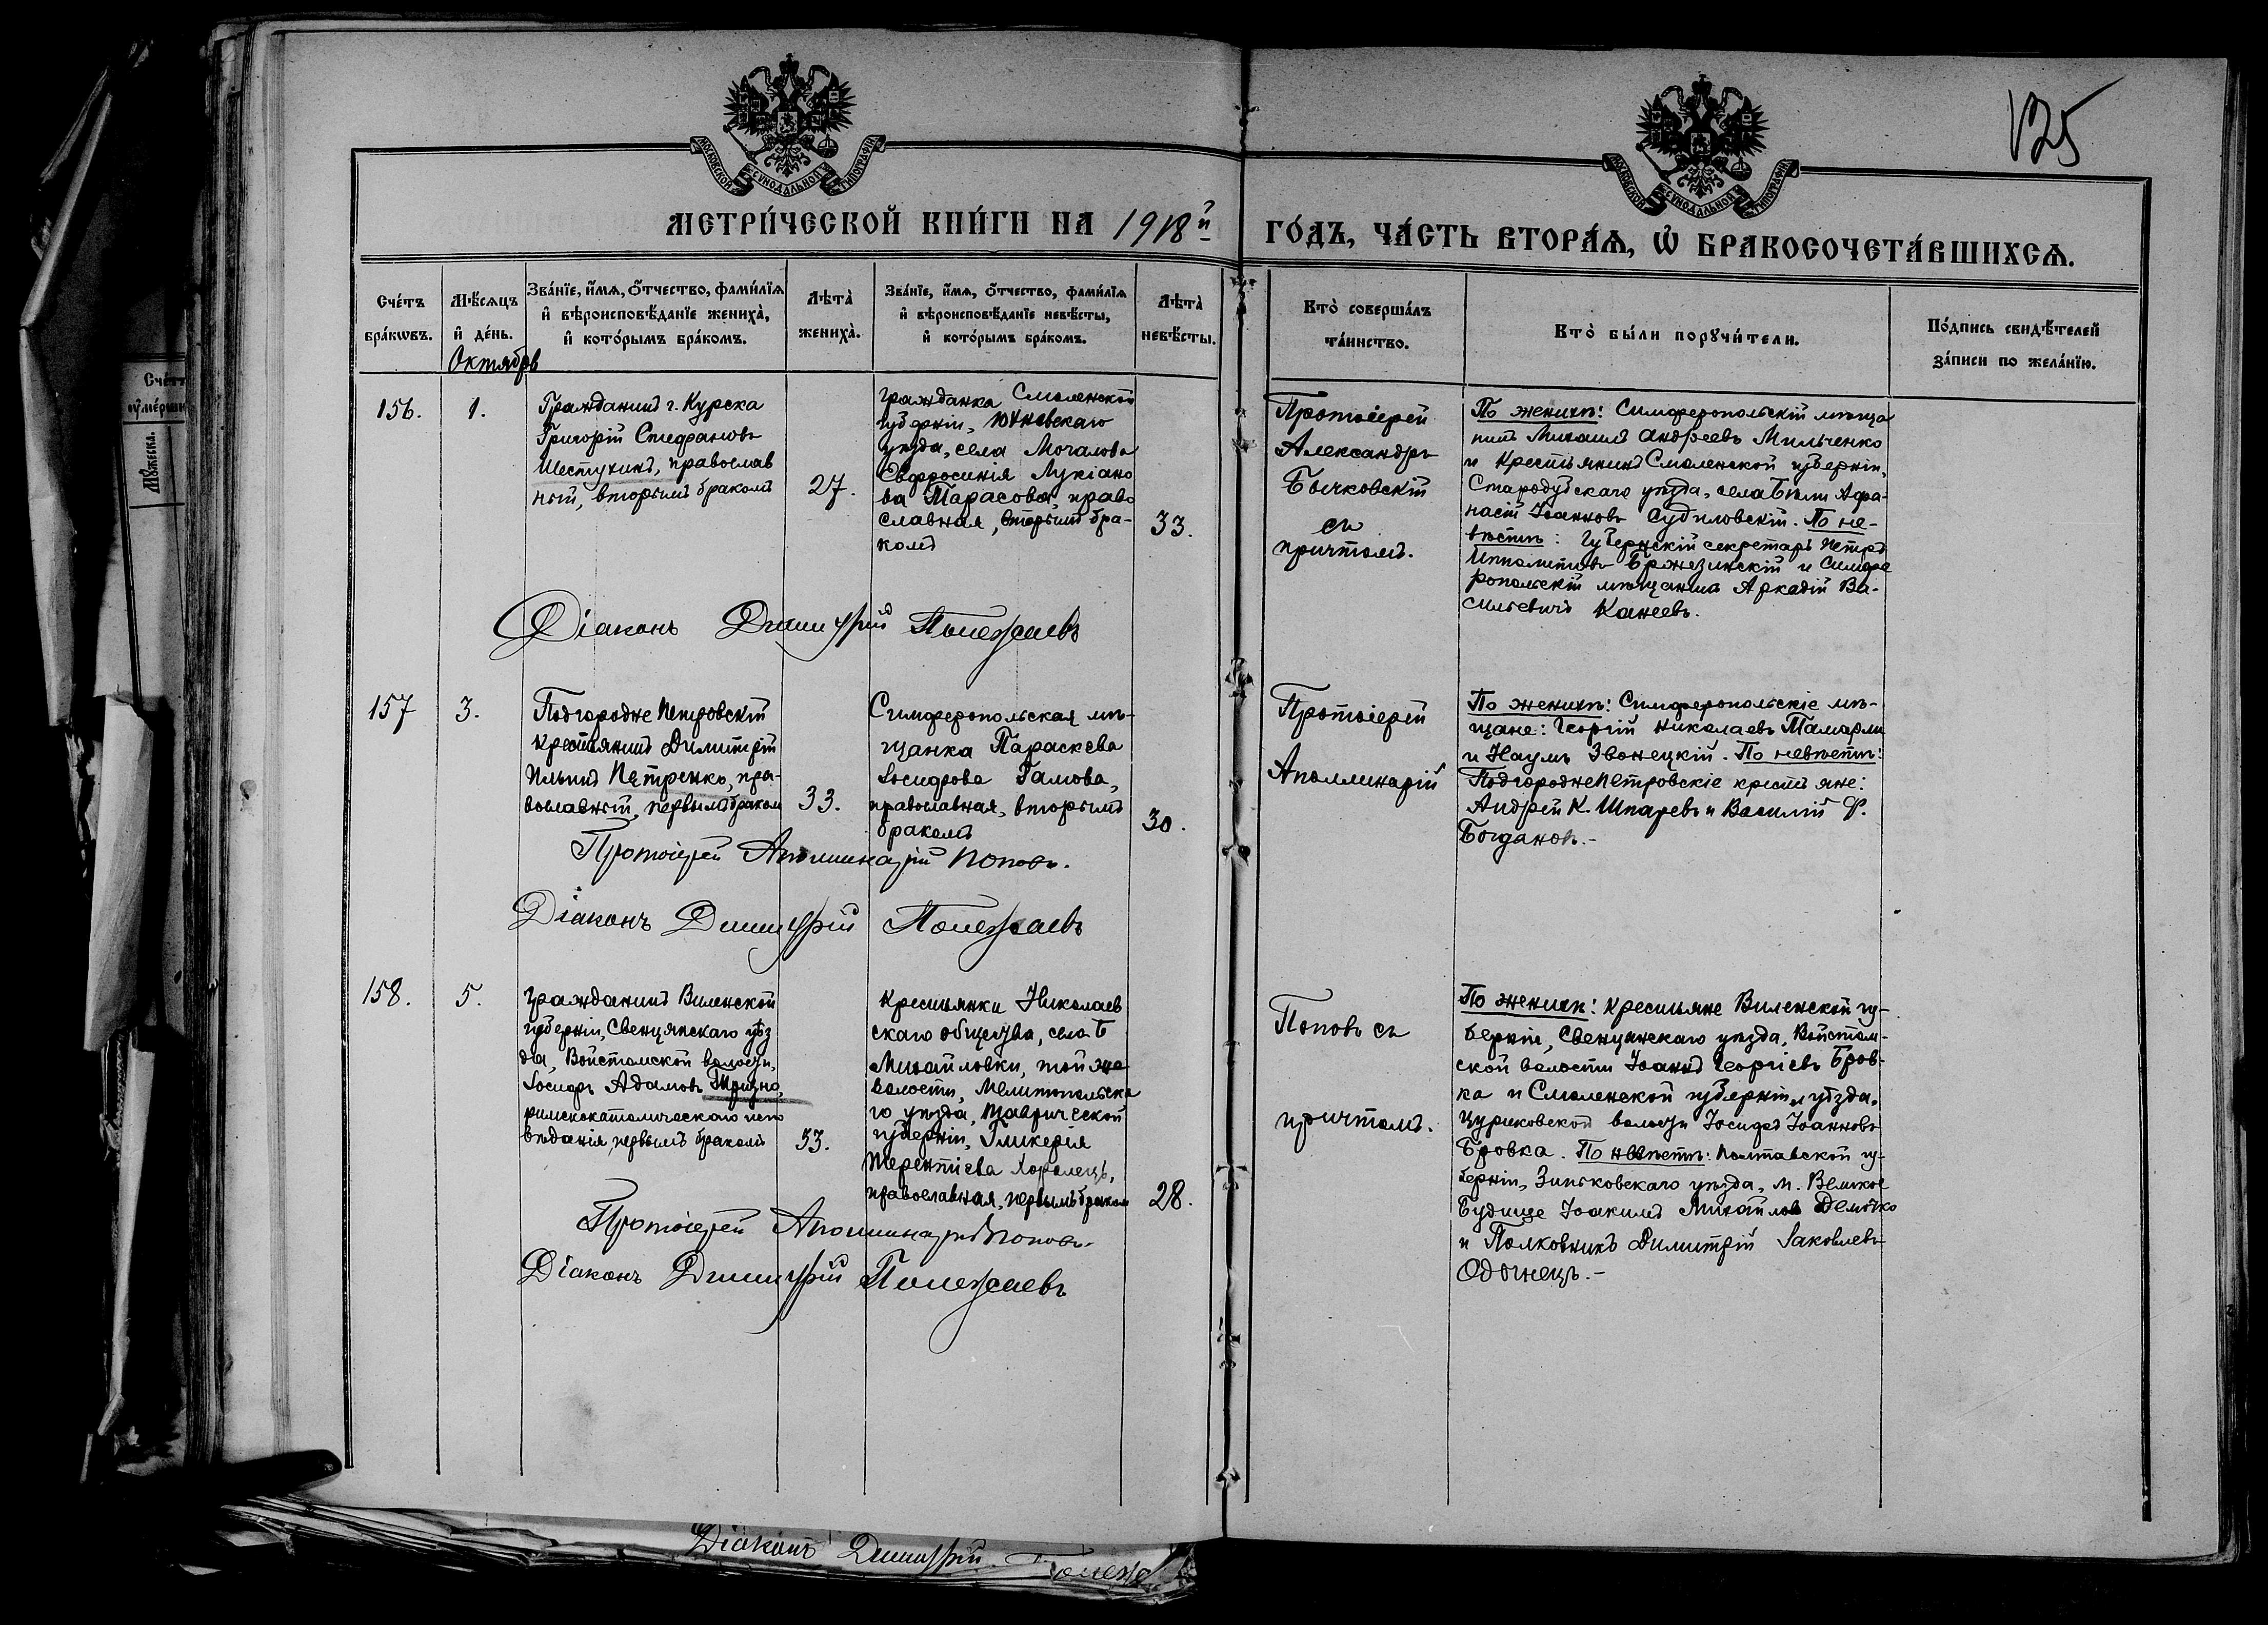 125
МОСКОВСКОЙ СѴНОДАЛЬНОЙ ТИПОГРАФІИ
МОСКОВСКОЙ СѴНОДАЛЬНОЙ ТИПОГРАФІИ
МЕТРИ́ЧЕСКОЙ КНИ́ГИ НА 1918й ГО́ДЪ, ЧА́СТЬ ВТОРА́Ѧ, Ѡ҆ БРАКОСОЧЕТА́ВШИХСѦ.
Сче́тъ бра́кѡвъ.
Мѣ́сѧцъ и҆ де́нь.
Зва́нїе, и҆́мѧ, ѻ҆́тчество, фами́лїѧ и҆ вѣроисповѣ́данїе жениха̀, и҆ кото́рымъ бра́комъ.
Лѣта̀ жениха̀.
Зва́нїе, и҆́мѧ, ѻ҆́тчество, фами́лїѧ и҆ вѣроисповѣ́данїе невѣ́сты, и҆ кото́рымъ бра́комъ.
Лѣта̀ невѣ́сты.
Кто̀ соверша́лъ та́инство.
Кто̀ бы́ли порꙋчи́тели.
По́дпись свидѣ́телей за́писи по жела́нїю.
Октябрь
156.
1.
Гражданинъ г. Курска
Григорій Стефановъ
Шестухинъ, православ
ный, вторымъ бракомъ
27.
Гражданка Смоленской
губерніи, Юхневскаго
уѣзда, села Мочалова
Евфросинія Лукіано
ва Тарасова, право
славная, вторымъ бра-
комъ
33.
Протоіерей
Александръ
Бычковскій
съ
причтомъ.
По женихѣ: Симферопольскій мѣща
нинъ Михаилъ Андреевъ Мильченко
и крестьянинъ Смоленской губерніи,
Стародубскаго уѣзда, села Бѣли Афа-
насій Іоанновъ Судиловскій. По не-
вѣстѣ: Губернскій секретарь Петръ
Ипполитовъ Бржезинскій и Симфе
ропольскій мѣщанинъ Аркадій Ва-
сильевичъ Канеевъ.
Діаконъ Димитрій Полежаевъ
157
3.
Подгородне Петровскій
крестьянинъ Димитрій
Ильинъ Петренко, пра-
вославный, первымъ бракомъ
33.
Симферопольская мѣ-
щанка Параскева
Іосифова Гамова,
православная, вторымъ
бракомъ
30.
Протоіерей
Аполлинарій
По женихѣ: Симферопольскіе мѣ-
щане: Георгій Николаевъ Тамарли
и Наумъ Звонецкій. По невѣстѣ:
ПодгороднеПетровскіе крестьяне:
Андрей К. Шпаревъ и Василій Ф.
Богдановъ.-
Протоіерей Аполлинарій Поповъ.
Діаконъ Димитрій Полежаевъ
158.
5.
Гражданинъ Виленской
губерніи, Свенцянскаго уѣз
да, Войстомской волости,
Іосифъ Адамовъ Тризно,
римскокатолическаго испо
вѣданія, первымъ бракомъ
53.
Крестьянки Николаев
скаго общества, села Б
Михайловки, той же
волости, Мелитопольска
го уѣзда, Таврической
губерніи, Гликерія
Терентіева Королець,
православная, первымъ бракомъ
28.
Поповъ съ
причтомъ.
По женихѣ: крестьяне Виленской гу-
берніи, Свенцянскаго уѣзда, Войстом-
ской волости Іоаннъ Георгіевъ Бров-
ка и Смоленской губерніи и уѣзда,
Цуриковской волости Іосифъ Іоанновъ
Бровка. По невѣстѣ: Полтавской гу-
берніи, Зиньковскаго уѣзда, м. Великое
Будище Іоакимъ Михайловъ
и Полковникъ Димитрій Іаковлевъ
Одинецъ.-
Протоіерей Аполлинарій Поповъ.
Діаконъ Димитрій Полежаевъ
Діаконъ Димитрій Полежа